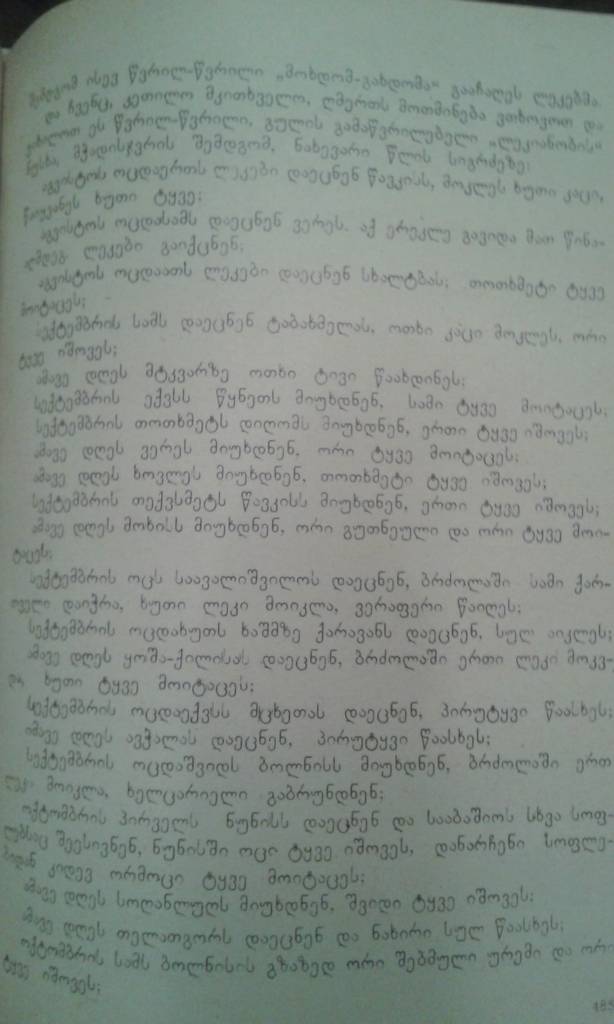 შემდგომ ისევ წვრილ-წვრილი „მოხდომ-გახდომა“ გააჩაღეს ლეკებმა.
და ჩვენც, კეთილო მკითხველო, ღმერთს მოთმინება ვთხოვოთ და
ვიხილოთ ეს წვრილ-წვრილი, გულის გამაწვრილებელი „ლეკიანობის“
ნუსხა, მჭადისჯვრის შემდგომ, ნახევარი წლის სიგრძეზე:
აგვისტოს ოცდაერთს ლეკები დაეცნენ წავკისს, მოკლეს ხუთი კაცი,
წაიყვანეს ხუთი ტყვე;
აგვისტოს ოცდასამს დაეცნენ ვერეს. აქ ერეკლე გავიდა მათ წინა-
აღმდეგ. ლეკები გაიქცნენ;
აგვისტოს ოცდაათს ლეკები დაეცნენ სხალტბას, თოთხმეტი ტყვე
მოიტაცეს;
სექტემბრის სამს დაეცნენ ტაბახმელას, ოთხი კაცი მოკლეს, ორი
ტყვე იშოვეს;
ამავე დღეს მტკვარზე ოთხი ტივი წაახდინეს;
სექტემბრის ექვსს წყნეთს მიუხდნენ, სამი ტყვე მოიტაცეს;
სექტემბრის თოთხმეტს დიღომს მიუხდნენ, ერთი ტყვე იშოვეს;
ამავე დღეს ვერეს მიუხდნენ, ორი ტყვე მოიტაცეს;
ამავე დღეს ხოვლეს მიუხდნენ, თოთხმეტი ტყვე იშოვეს;
სექტემბრის თექვსმეტს წავკისს მიუხდნენ, ერთი ტყვე იშოვეს;
ამავე დღეს მოხისს მიუხდნენ, ორი გუთნეული და ორი ტყვე მოი-
ტაცეს;
სექტემბრის ოცს საავალიშვილოს დაეცნენ, ბრძოლაში სამი ქარ-
თველი დაიჭრა, ხუთი ლეკი მოიკლა, ვერაფერი წაიღეს;
სექტემბრის ოცდახუთს ხაშმზე ქარავანს დაეცნენ, სულ აიკლეს;
ამავე დღეს ყოშა-ქილისას დაეცნენ, ბრძოლაში ერთი ლეკი მოკვ-
და, ხუთი ტყვე მოიტაცეს;
სექტემბრის ოცდაექვსს მცხეთას დაეცნენ, პირუტყვი წაასხეს;
იმავე დღეს ავჭალას დაეცნენ, პირუტყვი წაასხეს;
სექტემბრის ოცდაშვიდს ბოლნისს მიუხდნენ, ბრძოლაში ერთი
ლეკი მოიკლა, ხელცარიელი გაბრუნდნენ;
ოქტომბრის პირველს ნუნისს დაეცნენ და სააბაშიოს სხვა სოფ-
ლებსაც შეესივნენ, ნუნისში ოცი ტყვე იშოვეს, დანარჩენი სოფლე-
ბიდან კიდევ ორმოცი ტყვე მოიტაცეს;
ამავე დღეს სოღანლუღს მიუხდნენ, შვიდი ტყვე იშოვეს;
ამავე დღეს თელათგორს დაეცნენ და ნახირი სულ წაასხეს;
ოქტომბრის სამს ბოლნისის გზაზედ ორი შებმული ურემი და ორი
ტყვე იშოვეს;
485